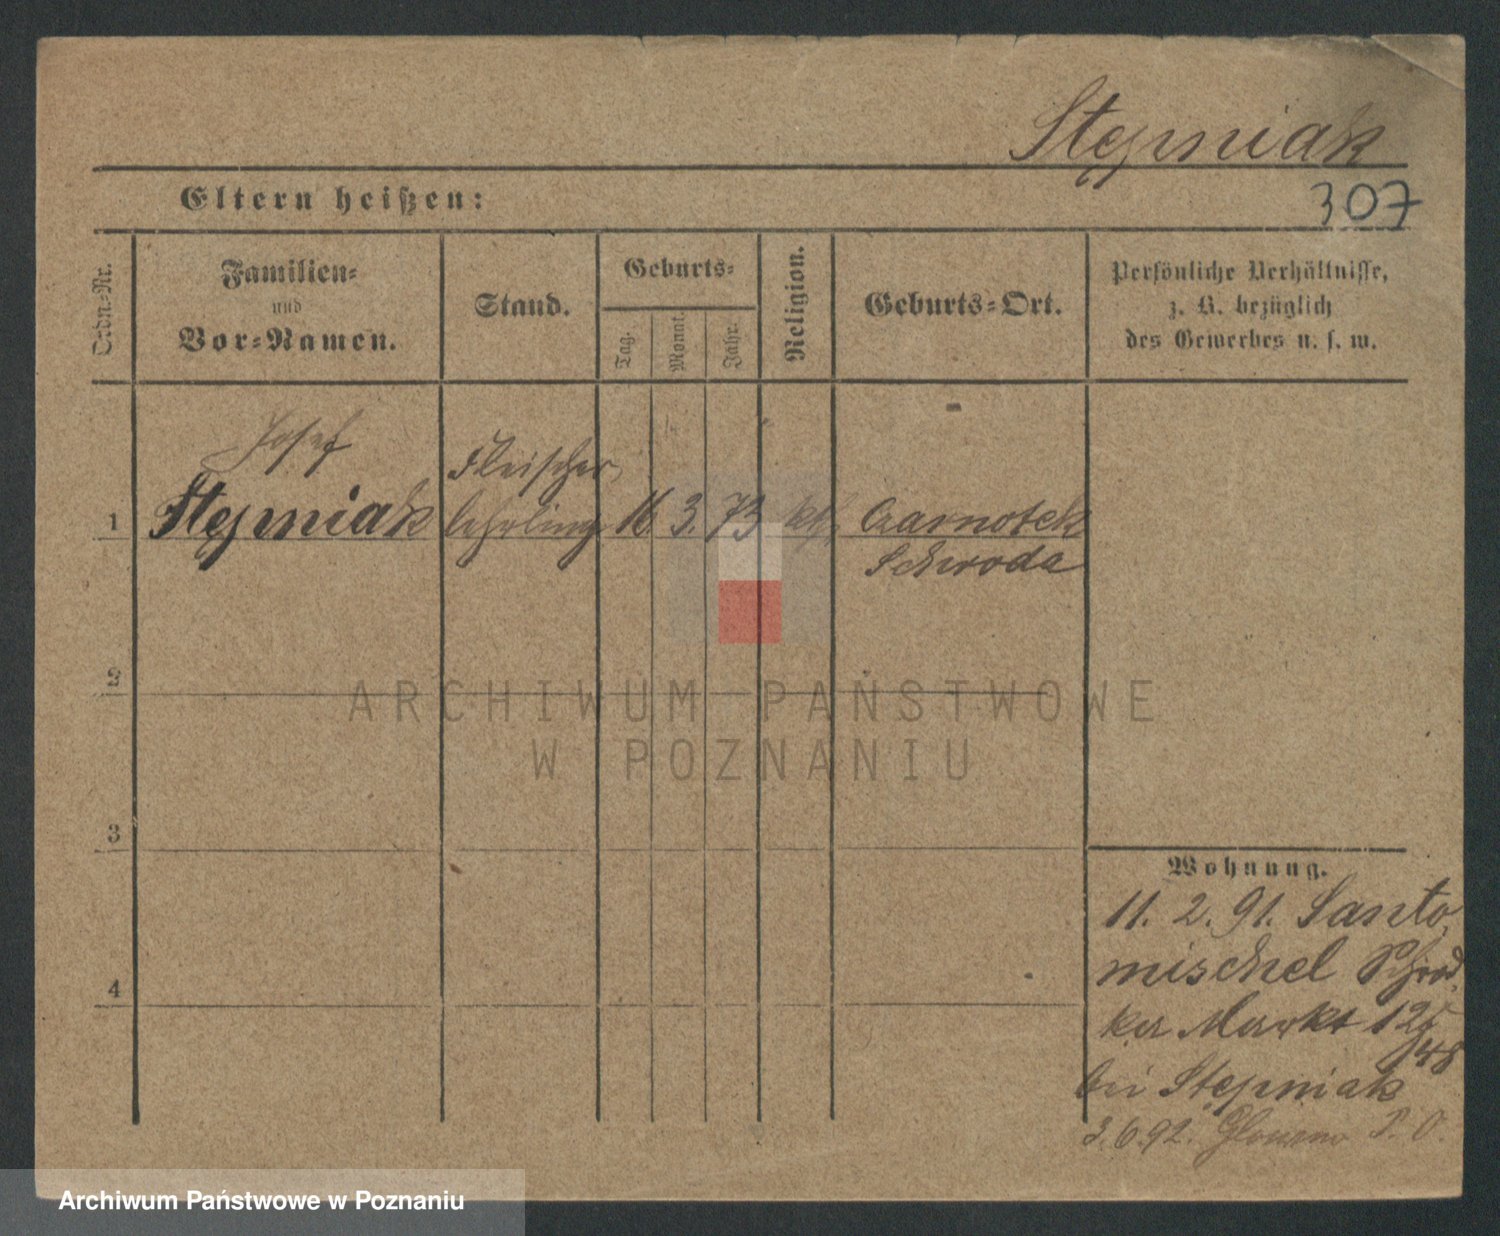 Stępniak
307
Eltern heißen:
Ordn.-Nr.
Familien-
und
Vor-Namen.
Stand.
Geburts-
Tag.
Monat.
Jahr.
Religion.
Geburts-Ort.
Persönliche Verhältnisse,
z. B. bezüglich
des Gewerbes u. s. w.
Josef
Fleischer
1 Stępniak lehrling 16. 3. 73 kth. Czarnotek
Schroda
2
3
4
Wohnung.
11. 2. 91. Santo
mischel Schrod
ker Markt
48
bei Stępniak
3.6.92. Glowno P. O.
ARCHIWUM PAŃSTWOWE
W POZNANIU
Archiwum Państwowe w Poznaniu